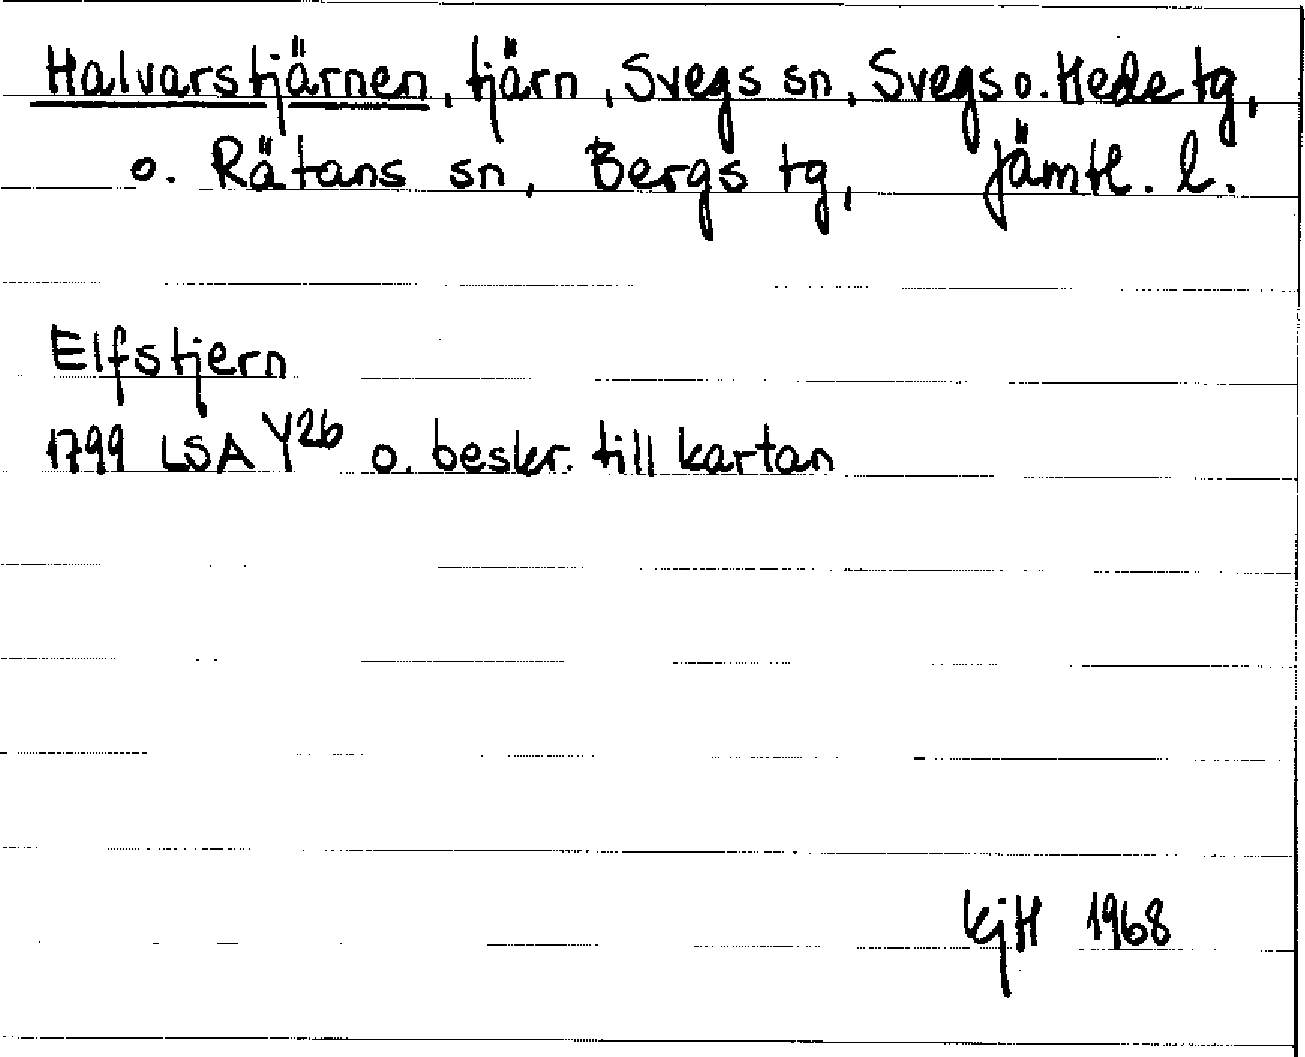 Halvarstjärnen, tjärn, Svegs sn, Svegs o. Hede tg,
o. Rätans sn, Bergs tg, Jämtl. l.
Elfstjern
1799 LSA Y26 o. beskr. till kartan
KjH 1968